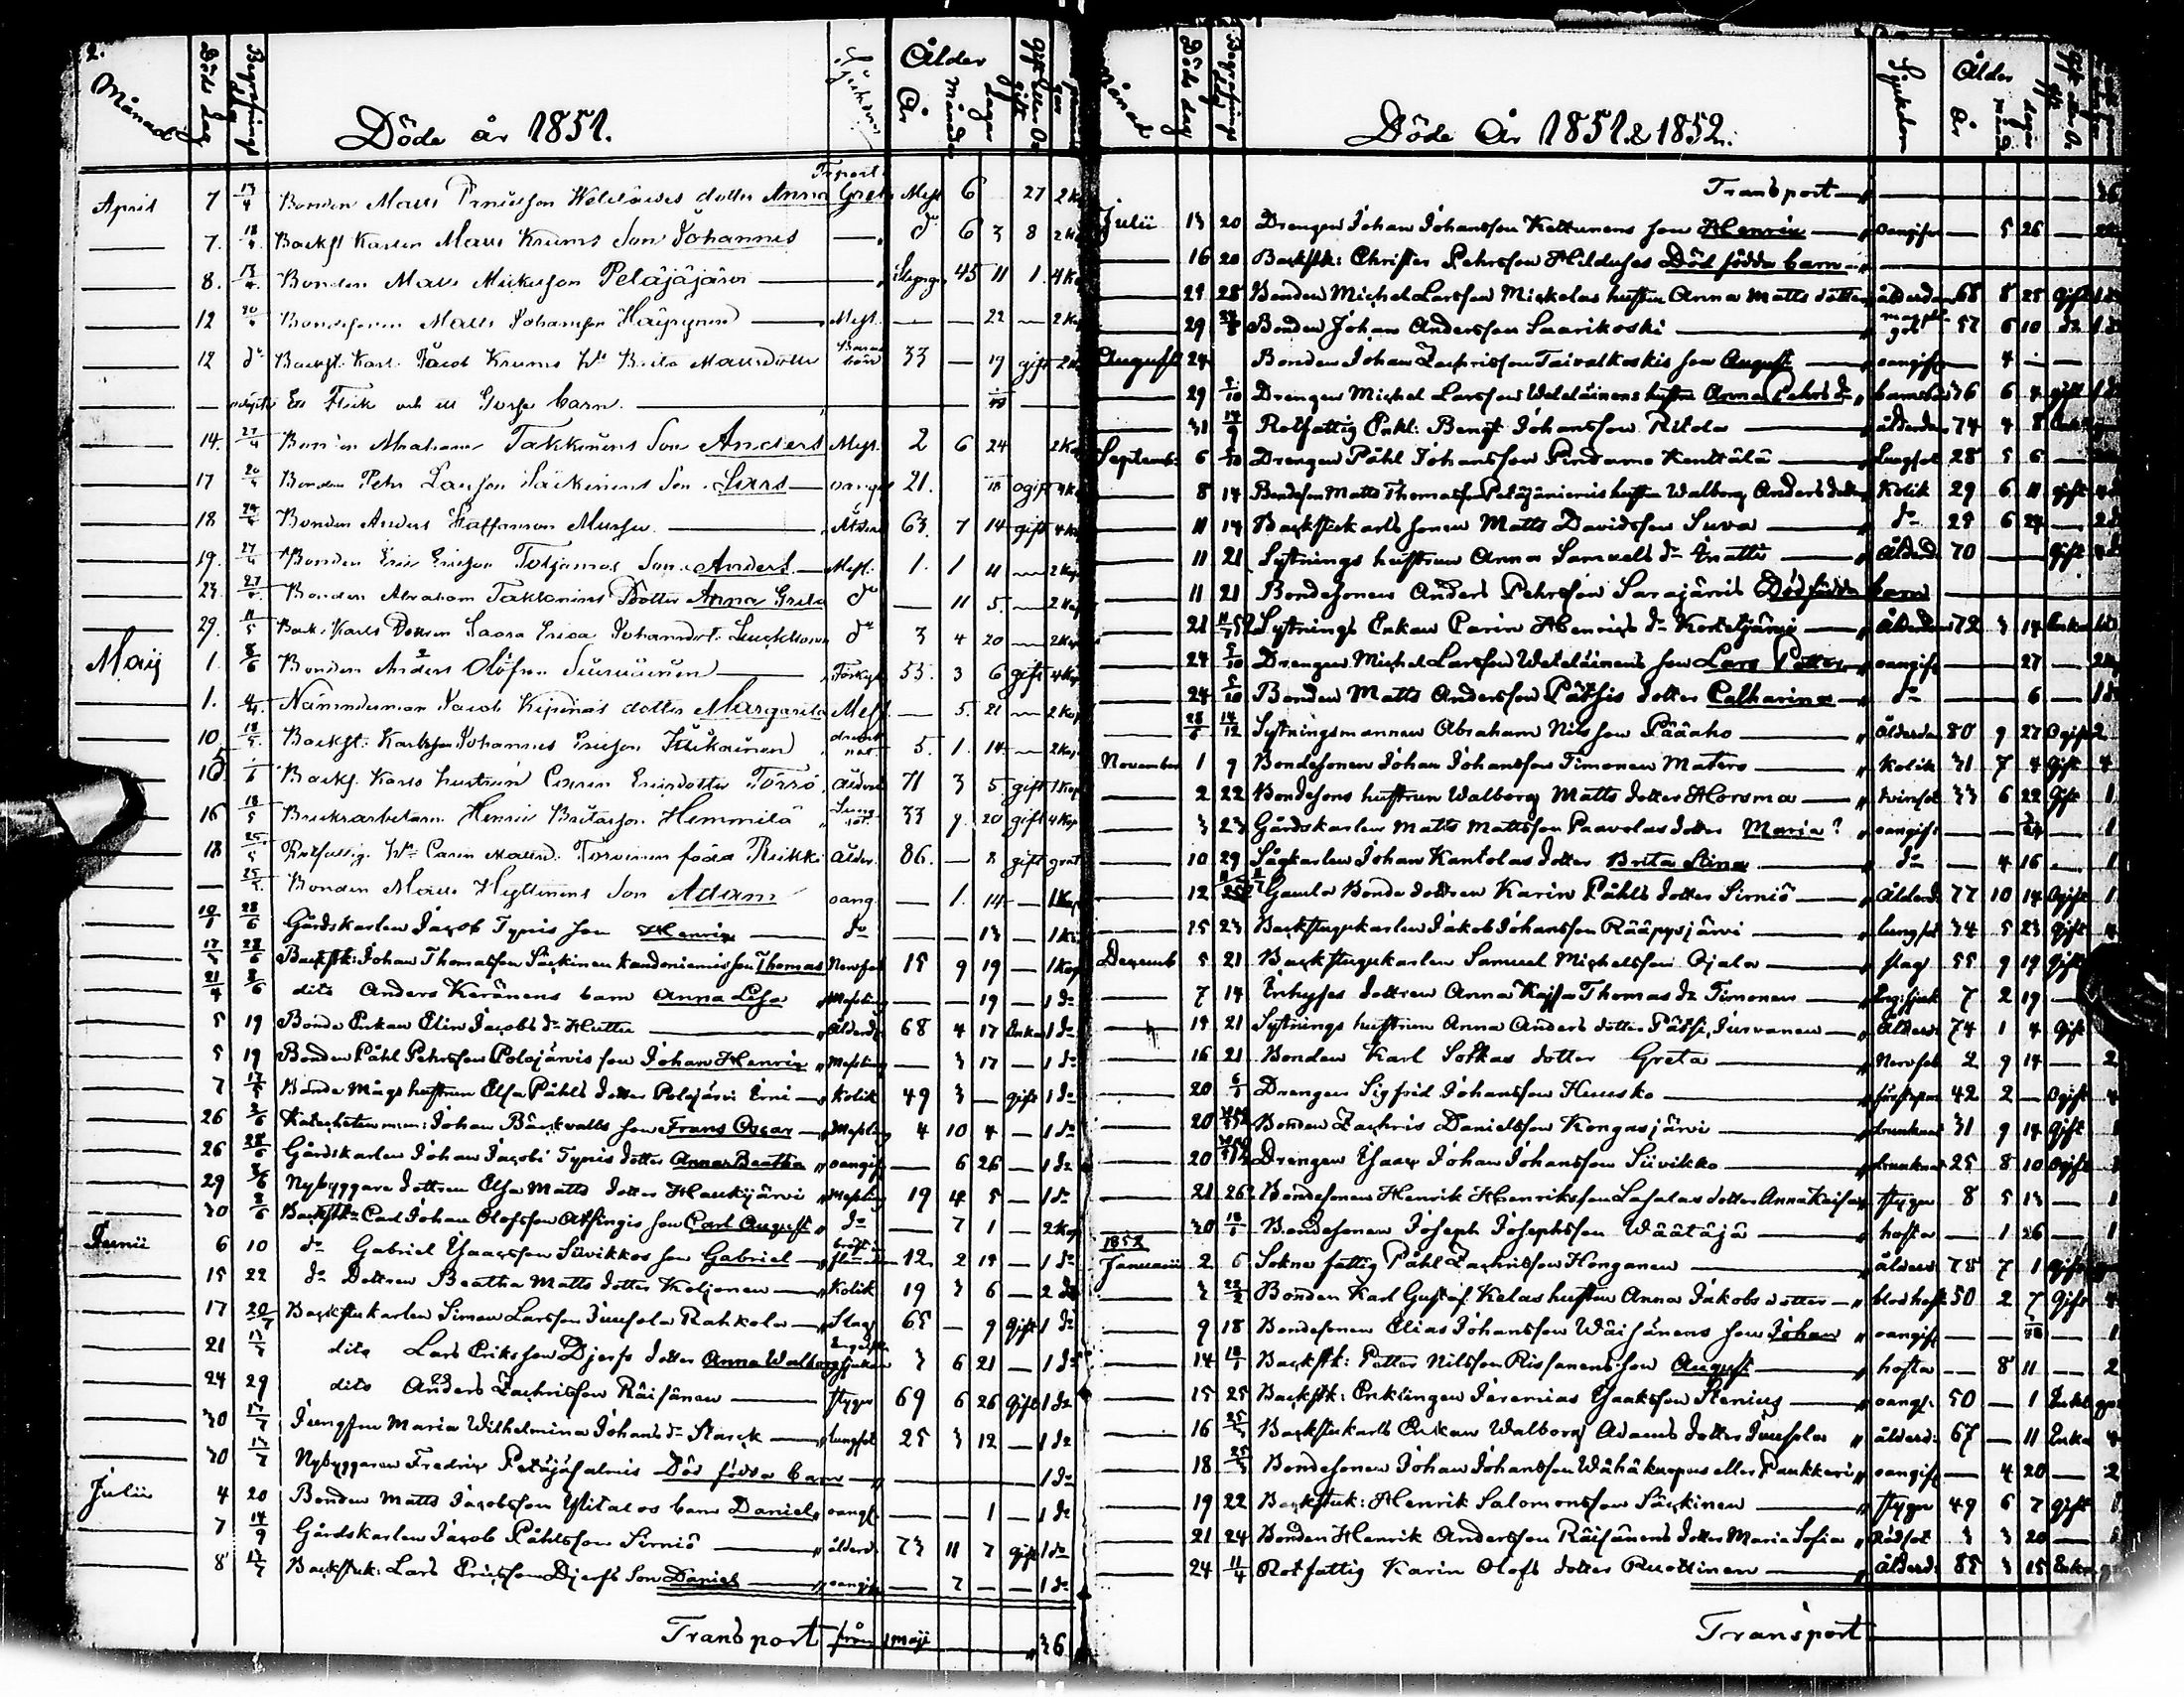 2.
Månad Döds dag Begrafnings dag Döde år 1851. Sjukdom Ålder År Månader dagar gift eller O gift
Transport
April 7 13/4 Bonden Matts dotter Anna Greta Mesl 6 27 2 K
7. 13/4 Backst Karlen Matts Krums Son Johannes do 6 3 8 2 K
8. 13/4 Bonden Matts Mickelson Petäjäjärvi 45 11 1. 4 K
12 20/4 Bondesonen Matts Johansson Häyrynen Mesl. 22 2 Kop
12 do Backst. Karl. Jacob Krums Hu Brita Mattsdotter Barns börd 33 19 gift 2 K
Ett Flick och ett Gosse barn.
14. 27/4 Bonden Abraham Takkinens Son Anders Mesl. 2 6 24 2 Kop
17 20/4 Bonden Pehr Larsson Säckinens Son Lars oangif 21. ogift 4 K
18 Bonden Anders Staffansson Mursu Ålderd 63. 7 14 gift 4 K
19. 27/4 Bonden Eric Ericsson Toljamos Son Anders Mesl. 1. 1 11 2 Kop
23. 27/4 Bonden Abraham Takkinens Dotter Anna Greta do 11 5. 2 Kop
29. 11/5 Back. Karls Dottren Saara Erica Johansdot. do 3 4 20 2 Kop
Maij 1. 8/6 Bonden Anders Olofson 55. 3 6 gift 4 Kop
1. Nämndeman Jacob Kipinäs dotter Margareta Mesl 5. 21 2 Kop
10 18/5 Backst: Karlsson Johannes Ericson drunknat 5. 1. 14 2 Kop
Backst. Karls hustrun Carin Ericsdotter Törrö Ålderd 71 3 5. gift 1 Kop
16 18/5 Bruksarbetaren Henric Hemmilä Lung sot. 33 9 20 gift 4 Kop
18 25/5 Rotfattig Hu Carin Mattsd. Torvinen föda Rukki Ålder. 86. 8 gift grat
25/5 Bonden Matts Hyttinens Son Adam oang. 1. 14 1 Kop
28/6 Gårdskarlen Jacob Typis son Henric do 13 1 K
28/6 Backstk: Johan Thomasson Säckinen kandoniemis son Thomas Nervfeb 15 9 19 1 Kop
dito Anders Keränens barn Anna Lisa Messling 19 1 do
5 19 Bonde Enkan Elin Jacobs dr Huttu Ålderd 68 4 17 Enka 1 do
5 19 Bonden Påhl Pehrsson Polojärvis son Johan Henric Messling 3 17 1 do
7 17/5 Bonde Mågs hustrun Elsa Påhls dotter Polojärvi Erni Kolik 49 3 gift 1 do
26 Katecheten Johan Bäckvalls son Frans Oscar Messling 4 10 4 1 do
26 28/6 Gårdskarlen Johan Jacobs Typis dotter Anna Beatha oangif 6 26 1 do
29 Nybyggare dottren Elsa Matts dotter Haukijärvi Messling 19 4 5 1 do
30 Backstk: Carl Johan Olofsson son Carl August do 7 1 2 Kop
Junii 6 10 do Gabriel Isaacsson Siivikkos son Gabriel 12. 2 19 1 do
15 22 do Dottren Beatha Matts dotter Koljonen Kolik 19 3 6 2 do
17 20/7 Backstukarlen Simon Larsson Juusola Rahkola Slag 65 9 Gift 1 do
21 dito Lars Eriksson Djerfs dotter Anna Walborg 3 6 21 1 do
24 29 dito Anders Zachrisson Räisänen Stygn 69 6 26 Gift 1 do
30 13/7 Jungfru Maria Wilhelmina Johans dr Starck lungsot 25 3 12 1 do
30 13/7 Nybyggaren Fredric Petäjäsalmis Död födda barn 1 do
Julii 4 20 Bonden Matts Jacobsson Ylitalos barn Daniel oangf. 1 1 do
7 14/9 Gårdskarlen Jacob Påhlsson Sirniö ålderd. 73 11 7 Gift 1 do
8 13/7 Backstuk: Lars Ericsson Djerfs Son Daniel oangif 7 1 do
Transport från 1 maji 36
Månad Döds dag Begrafnings dag Döde År 1851 & 1852. Sjukdom Ålder År Månad dagar Gift eller O
Transport 36
Julii 13 20 Drengen Johan Johansson Keltunens son Henric oangif 5 26
16 20 Backstk: Christer Pehrsson Död födda barn
29 28 Bonden Michel Larsson Mickolas hustru Anna Matts dotter ålderdom 68 8 25 Gift
29 Bonden Johan Andersson Saarikoski 57 6 10 do
August 24 Bonden Johan Zachrisson Taivalkoskis son August oangif 4
29 Drengen Michel Larsson Weteläinens hustru Anna Pehrs dr barnsbörd 36 6 4 gift
31 14/9 Rotfattig Enkl: Bengt Johansson Ritola ålderdom 74 4 8 Enkl
Septemb: 6 Drengen Påhl Johansson Pindamo Kenttälä Lungsot 28 5 6
8 14 Bondeson Matts Thomasson Petäjäniemis hustru Walborg Anders dotter Kolik 29 6 11 gift
11 14 Backstukarls sonen Matts Davidsson Suva do 25 6 24
11 21 Sytnings hustrun Anna Samuels dr Inatti Ålderd. 70 Gift
11 21 Bondesonen Anders Pehrsson Sarajärvis Död födda barn
21 Sytnings Enkan Carin Henrics dr Kosteljärvi Ålderdom 72 3 14 Enka
24 5/10 Drengen Michel Larsson Weteläinens son Lars Petter oangif 27
24 5/10 Bonden Matts Andersson Pätsis dotter Catharina do 6
14/12 Sytningsmannen Abraham Nilsson Pääaho ålderdom 80 9 27 Ogift 2
November 1 9 Bondesonen Johan Johansson Timonen Matero Kolik 31 7 4 Gift 4
2 22 Bondesons hustrun Walborg Matts dotter Horsma tvinsot 33 6 22 Gift 1
3 23 Gårdskarlen Matts Mattsson Paavolas dotter Maria? oangif 1
10 29 Sågkarlen Johan Kantolas dotter Brita Stina do 4 16 1
12 Gamla Bonde dottren Karin Påhls dotter Sirniö Ålderd. 77 10 14 Ogift 1
15 23 Backstugukarlen Jakob Johansson Rääpysjärvi lungsot 34 5 23 Gift
Decemb 5 21 Backstugukarlen Samuel Michelsson Ojala slag 55 9 19 Gift
7 14 Inhyses dottren Anna Kajsa Thomas dr Timonen 7 2 19
14 21 Sytnings hustrun Anna Anders dotter Pätsi, Jurvanen Ålderd. 74 1 4 Gift
16 21 Bonden Karl Sotkas dotter Greta Nervfeb 2 9 14 2
20 6/1 Drengen Sigfrid Johansson Kuusko 42 2 Ogift 4
20 Bonden Zachris Danielsson Kongasjärvi drunknat 31 9 14 Gift
20 Drengen Isaac Johan Johansson Siivikko drunknat 25 8 10 Ogift
21 26 Bondesonen Henrik Henriksson Lasalas dotter Anna Kaisa stygn 8 5 13 1
30 18/1 Bondesonen Joseph Josephsson Wäätäjä hosta 1 26 1
1852
Januarii 2 6 Sokne fattig Påhl Zachrisson Honganen ålderd 78 7 1 Gift
3 22/2 Bonden Karl Gustaf Kelas hustru Anna Jakobs dotter blod host 50 2 7 Gift 4
9 18 Bondesonen Elias Johansson Wäisänens son Johan oangif 1
14 18/1 Backstk: Petter Nilsson Rissanens son August hosta 8 11 2
15 25 Backstk: Enklingen Jeremias Isaksson Stenius oangf. 50 1 Enkl
16 25/1 Backstukarls Enkan Walborg Adams dotter Juusola ålderd: 67 11 Enka 4
18 25/1 Bondesonen Johan Johansson Wähäkuopus eller Paukkeri oangif 4 20 2
19 22 Backstuk: Henrik Salomonsson Säckinen stygn 49 6 7 Gift
21 24 Bonden Henrik Andersson Räisänens dotter Maria Sofia Rödsot 3 3 20
24 11/4 Rotfattig Karin Olofs dotter Ruottinen Ålderd: 85 3 15 Enka
Transport